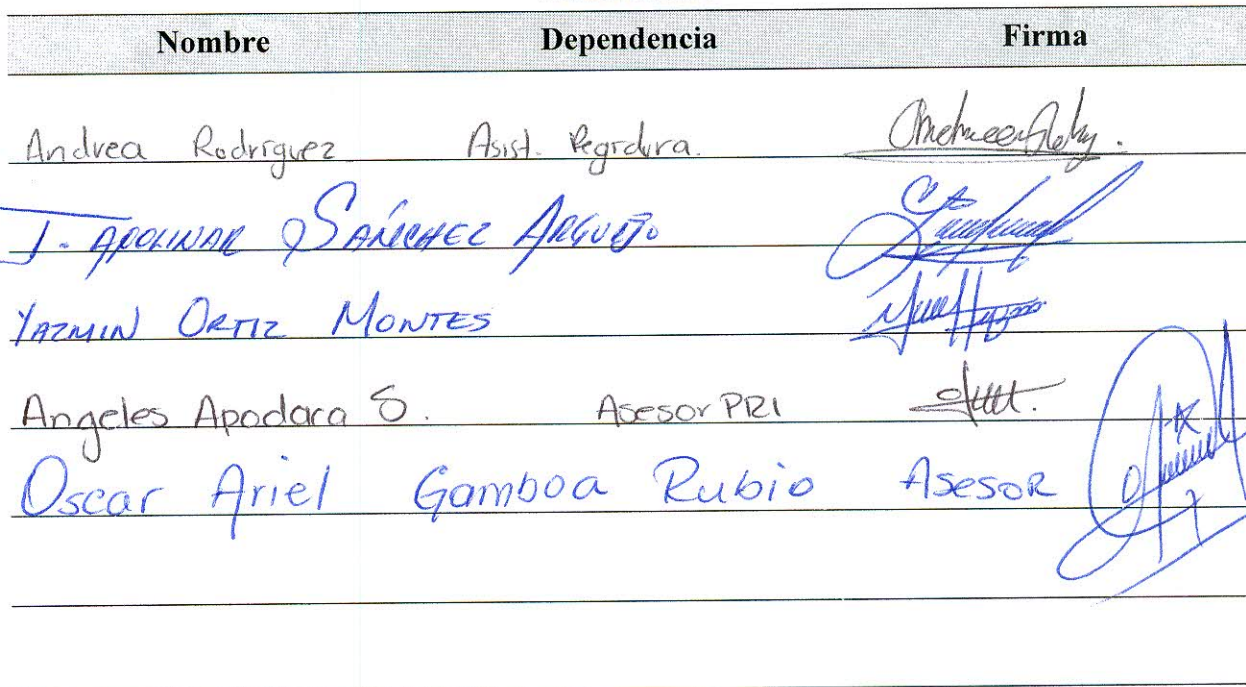 Nombre Dependencia Firma
Andrea Rodríguez Asist. Regidura.
J. APOLINAR SÁNCHEZ ARGUETO
YAZMIN ORTIZ MONTES
Angeles Apodaca S. Asesor PRI
Oscar Ariel Gamboa Rubio Asesor